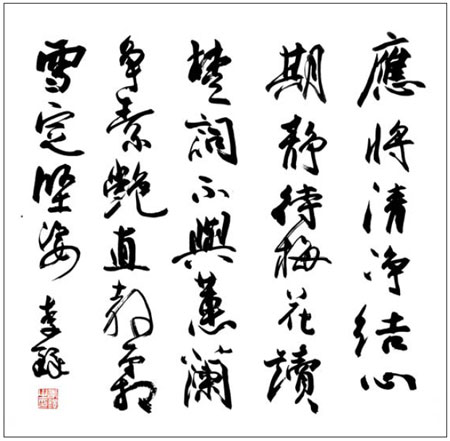 應將清净結心
期静待梅花讀
楚詞不與蕙蘭
争素艷直教霜
雪定堅姿
李